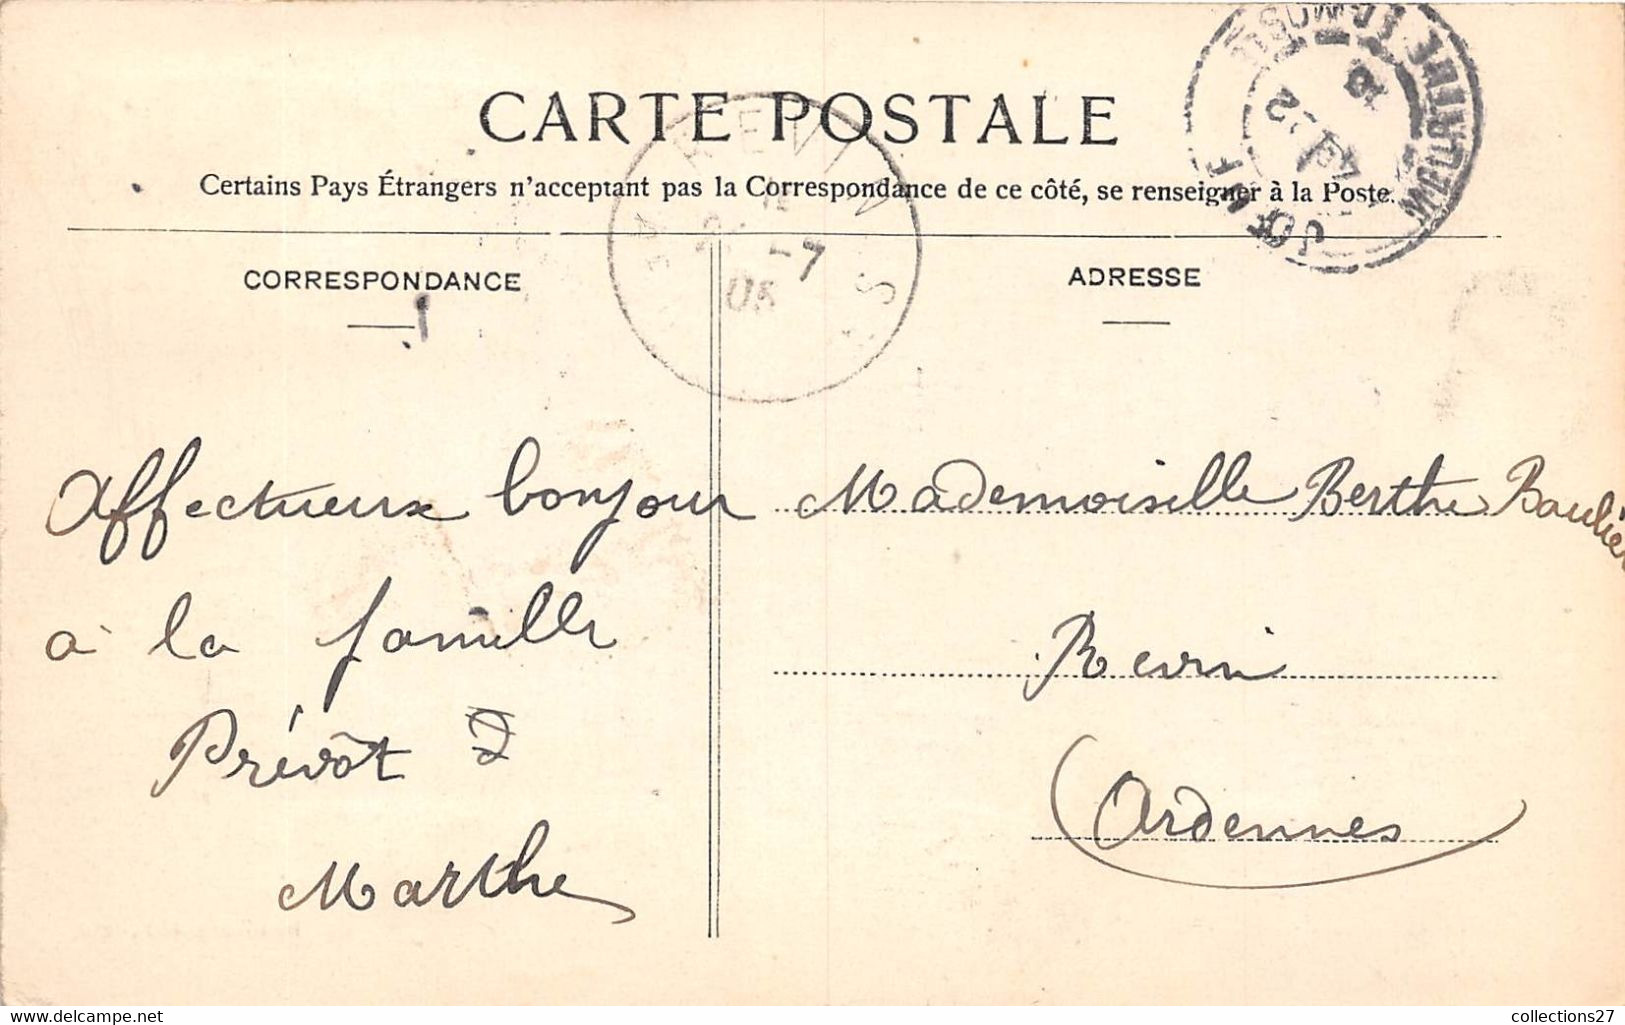 CARTE POSTALE
Certains Pays Étrangers n'acceptent pas la Correspondance de ce côté, se renseigner à la Poste.
CORRESPONDANCE
Affectueux bonjour
à la famille
Prévôt
Marthe
ADRESSE
Mademoiselle Berthe Baulier
Revin
Ardennes
REVIN
-7
delcampe.net
collections27